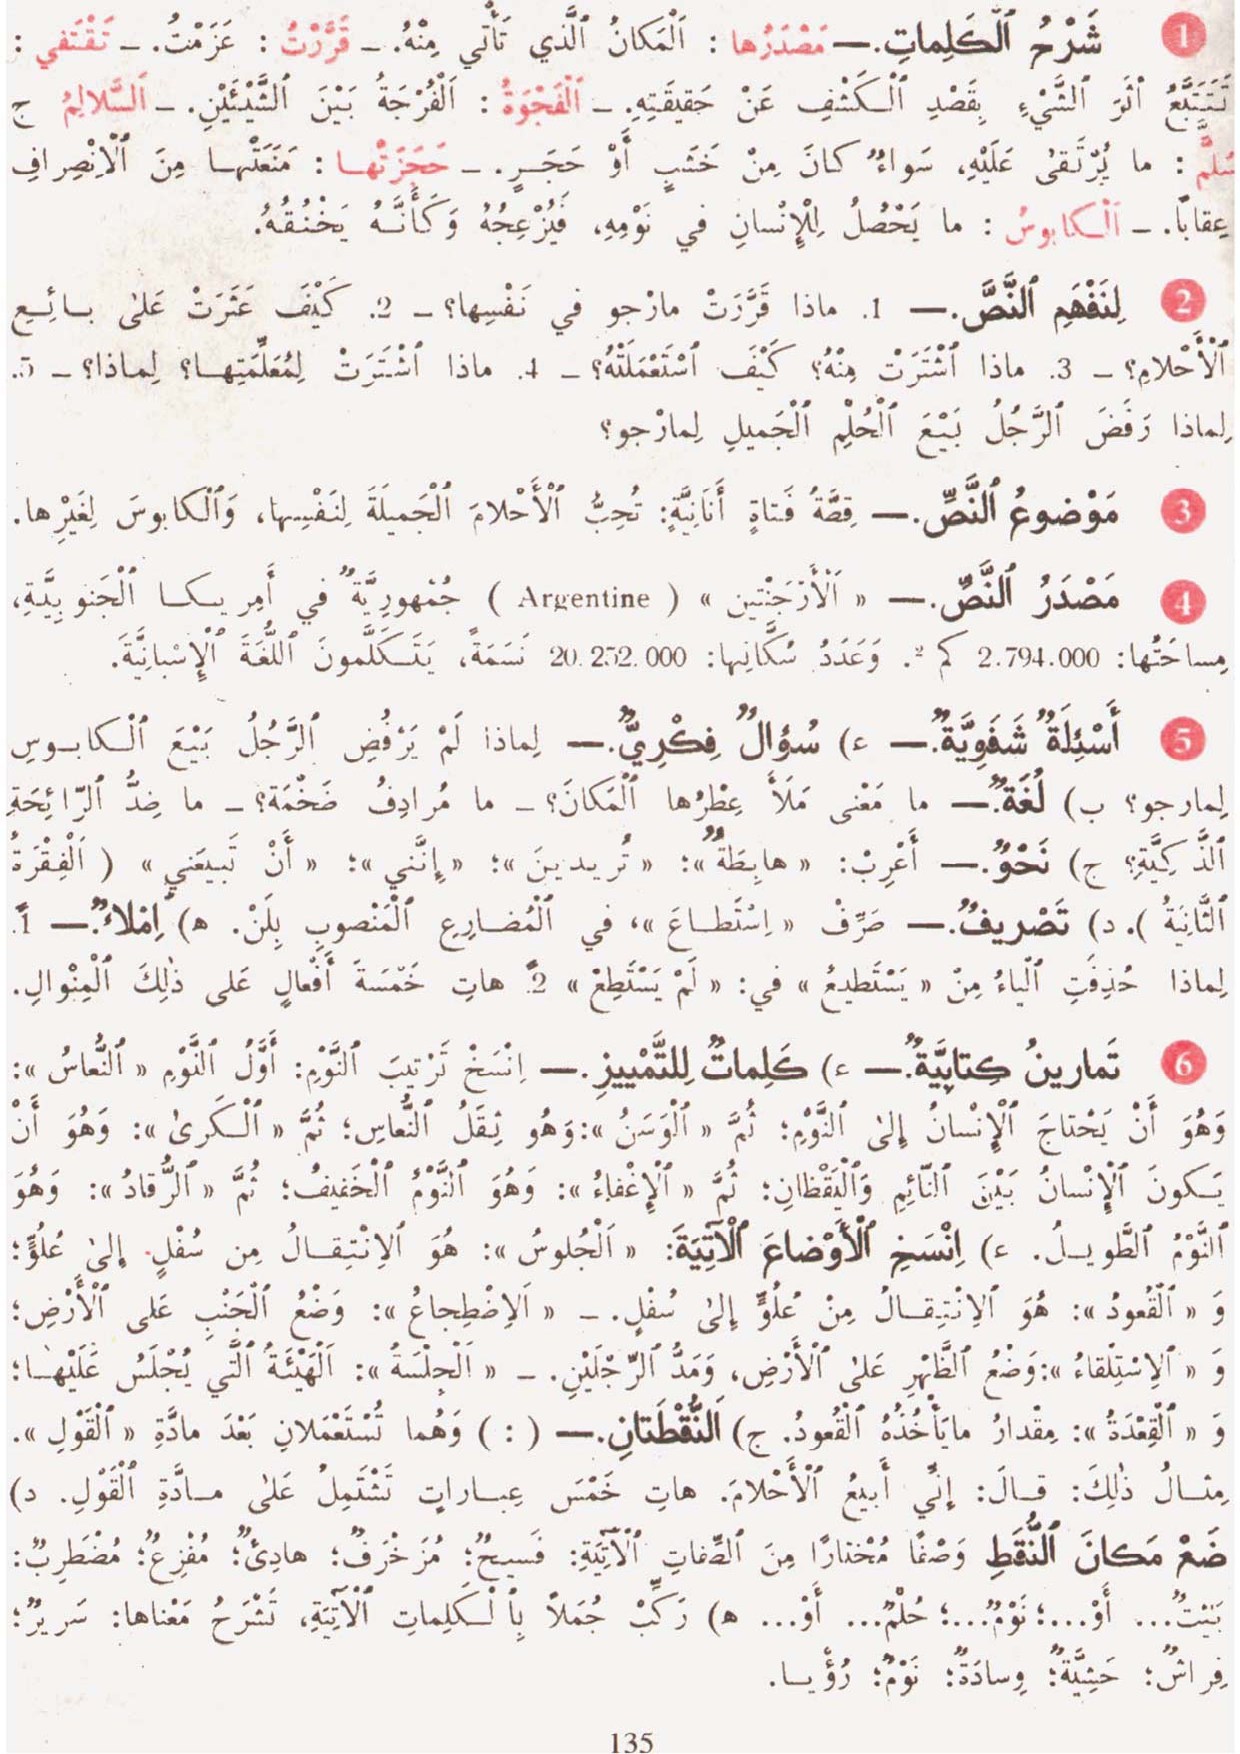 1 شَرْحُ ٱلْكَلِماتِ.— مَصْدَرُها : اَلْمَكانُ ٱلَّذي تَأْتي مِنْهُ. – قَرَّرْتُ : عَزَمْتُ. – تَقْتَفي :
تَتَتَبَّعُ أَثَرَ ٱلشَّيْءِ بِقَصْدِ ٱلْكَشْفِ عَنْ حَقيقَتِهِ. – ٱلْفَجْوَةُ : اَلْفُرْجَةُ بَيْنَ ٱلشَّيْئَيْنِ. – اَلسَّلالِمُ ج
سُلَّمٌ : ما يُرْتَقىٰ عَلَيْهِ، سَواءٌ كانَ مِنْ خَشَبٍ أَوْ حَجَرٍ. – حَجَزَتْها : مَنَعَتْها مِنَ ٱلْاِنْصِرافِ
عِقابًا. – اَلْكابوسُ : ما يَحْصُلُ لِلْإِنْسانِ في نَوْمِهِ، فَيُزْعِجُهُ وَكَأَنَّهُ يَخْنُقُهُ.
2 لِنَفْهَمِ ٱلنَّصَّ.— 1. ماذا قَرَّرَتْ مارْجو في نَفْسِها؟ – 2. كَيْفَ عَثَرَتْ عَلىٰ بائِعِ
ٱلْأَحْلامِ؟ – 3. ماذا ٱشْتَرَتْ مِنْهُ؟ كَيْفَ ٱسْتَعْمَلَتْهُ؟ – 4. ماذا ٱشْتَرَتْ لِمُعَلِّمَتِها؟ لِماذا؟ – 5.
لِماذا رَفَضَ ٱلرَّجُلُ بَيْعَ ٱلْحُلْمِ ٱلْجَميلِ لِمارْجو؟
3 مَوْضوعُ ٱلنَّصِّ.— قِصَّةُ فَتاةٍ أَنانِيَّةٍ: تُحِبُّ ٱلْأَحْلامَ ٱلْجَميلَةَ لِنَفْسِها، وَٱلْكابوسَ لِغَيْرِها.
4 مَصْدَرُ ٱلنَّصِّ.— « اَلْأَرْجَنْتين » ( Argentine ) جُمْهورِيَّةٌ في أَمِريكا ٱلْجَنوبِيَّةِ،
مِساحَتُها: 2.794.000 كم ². وَعَدَدُ سُكَّانِها: 20.252.000 نَسَمَةً، يَتَكَلَّمونَ ٱللُّغَةَ ٱلْإِسْبانِيَّةَ.
5 أَسْئِلَةٌ شَفَوِيَّةٌ.— ء) سُؤالٌ فِكْرِيٌّ.— لِماذا لَمْ يَرْفُضِ ٱلرَّجُلُ بَيْعَ ٱلْكابوسِ
لِمارجو؟ ب) لُغَةٌ.— ما مَعْنى مَلَأَ عِطْرُها ٱلْمَكانَ؟ – ما مُرادِفُ ضَخْمَة؟ – ما ضِدُّ ٱلرّائِحَةِ
ٱلذَّكِيَّةِ؟ ج) نَحْوٌ.— أَعْرِبْ: « هابِطَةٌ »: « تُريدينَ »؛ « إِنَّني »؛ « أَنْ تَبيعَني » ( اَلْفِقْرَةُ
ٱلثَّانِيَةُ ). د) تَصْريفٌ.— صَرِّفْ « اِسْتَطاعَ »، في ٱلْمُضارِعِ ٱلْمَنْصوبِ بِلَنْ. ه) إِمْلاءٌ.— 1.
لِماذا حُذِفَتِ ٱلْياءُ مِنْ « يَسْتَطيعُ » في: « لَمْ يَسْتَطِعْ » 2. هاتِ خَمْسَةَ أَفْعالٍ عَلى ذٰلِكَ ٱلْمِنْوالِ.
6 تَمارينُ كِتابِيَّةٌ.— ء) كَلِماتٌ لِلتَّمْييزِ.— اِنْسَخْ تَرْتيبَ ٱلنَّوْمِ: أَوَّلُ ٱلنَّوْمِ « ٱلنُّعاسُ »:
وَهُوَ أَنْ يَحْتاجَ ٱلْإِنْسانُ إِلىٰ ٱلنَّوْمِ؛ ثُمَّ « ٱلْوَسَنُ »:وَهُو ثِقَلُ ٱلنُّعاسِ؛ ثُمَّ « ٱلْكَرىٰ »: وَهُوَ أَنْ
يَكونَ ٱلْإِنْسانُ بَيْنَ ٱلنّائِمِ وَٱلْيَقْظانِ؛ ثُمَّ « ٱلْإِغْفاءُ »: وَهُوَ ٱلنَّوْمُ ٱلْخَفيفُ؛ ثُمَّ « ٱلرُّقادُ »: وَهُوَ
ٱلنَّوْمُ ٱلطَّويلُ. ء) اِنْسَخِ ٱلْأَوْضاعَ ٱلْآتِيَةَ: « اَلْجُلوسُ »: هُوَ ٱلِاْنْتِقالُ مِن سُفْلٍ إِلىٰ عُلُوٍّ؛
وَ « ٱلْقُعودُ »: هُوَ ٱلِاْنْتِقالُ مِنْ عُلُوٍّ إِلىٰ سُفْلٍ. – « اَلِاضْطِجاعُ »: وَضْعُ ٱلْجَنْبِ عَلى ٱلْأَرْضِ؛
وَ « ٱلِاسْتِلْقاءُ »:وَضْعُ ٱلظَّهْرِ عَلىٰ ٱلْأَرْضِ، وَمَدُّ ٱلرِّجْلَيْنِ. – « اَلْجِلْسَةُ »: اَلْهَيْئَةُ ٱلَّتي يُجْلَسُ عَلَيْها؛
وَ « ٱلْقِعْدَةُ »: مِقْدارُ مايَأْخُذُهُ ٱلْقُعودُ. ج) اَلنُّقْطَتانِ.— ( : ) وَهُما تُسْتَعْمَلانِ بَعْدَ مادَّةِ « ٱلْقَوْلِ ».
مِثالُ ذٰلِكَ: قالَ: إِنّي أَبيعُ ٱلْأَحْلامَ. هاتِ خَمْسَ عِباراتٍ تَشْتَمِلُ عَلىٰ مادَّةِ ٱلْقَوْلِ. د)
ضَعْ مَكانَ ٱلنُّقَطِ وَصْفًا مُخْتارًا مِنَ ٱلصِّفاتِ ٱلْآتِيَةِ: فَسيحٌ؛ مُزَخْرَفٌ؛ هادِئٌ؛ مُفْزِعٌ؛ مُضْطَرِبٌ:
بَيْتٌ... أَوْ...؛ نَوْمٌ...؛ حُلْمٌ... أَوْ... ه) رَكِّبْ جُمَلاً بِٱلْكَلِماتِ ٱلْآتِيَةِ، تَشْرَحُ مَعْناها: سَريرٌ؛
فِراشٌ؛ حَشِيَّةٌ؛ وِسادَةٌ؛ نَوْمٌ؛ رُؤْيا.
135